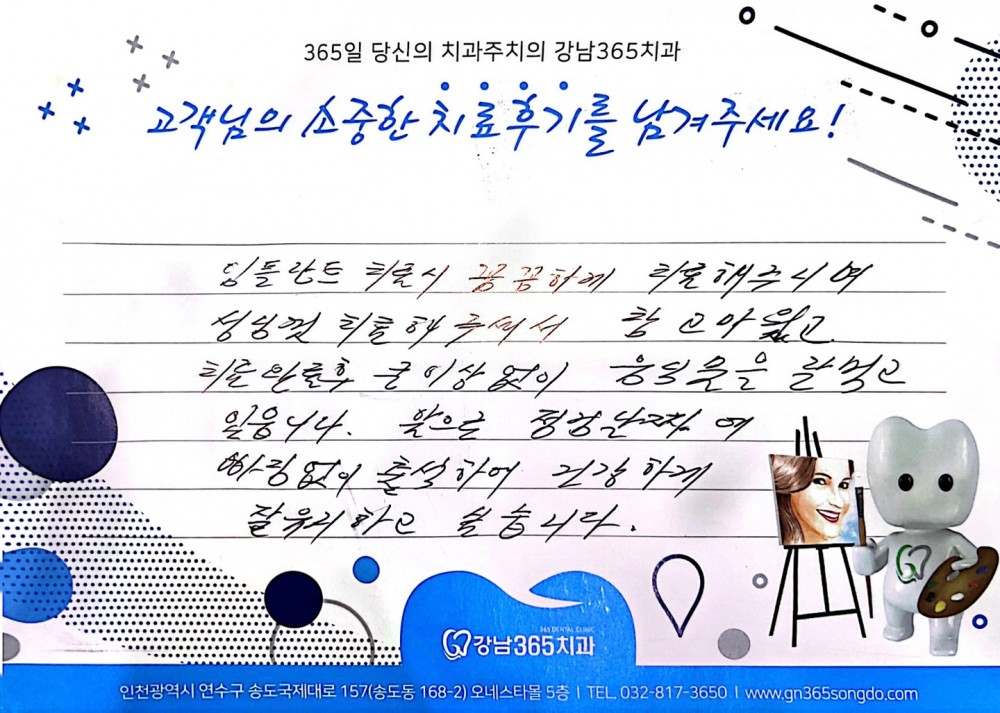 365일 당신의 치과주치의 강남365치과
고객님의 소중한 치료후기를 남겨주세요!
임플란트 치료시 꼼꼼하게 치료해주시며
성심껏 치료해 주셔서 참 고마웠고
치료완료후 큰이상 없이 음식물을 잘먹고
있음니다. 앞으로 정검날짜에
빠짐없이 출석하여 건강하게
잘유지하고 싶습니다.
365 DENTAL CLINIC
강남365치과
인천광역시 연수구 송도국제대로 157(송도동 168-2) 오네스타몰 5층 I TEL. 032-817-3650 I www.gn365songdo.com